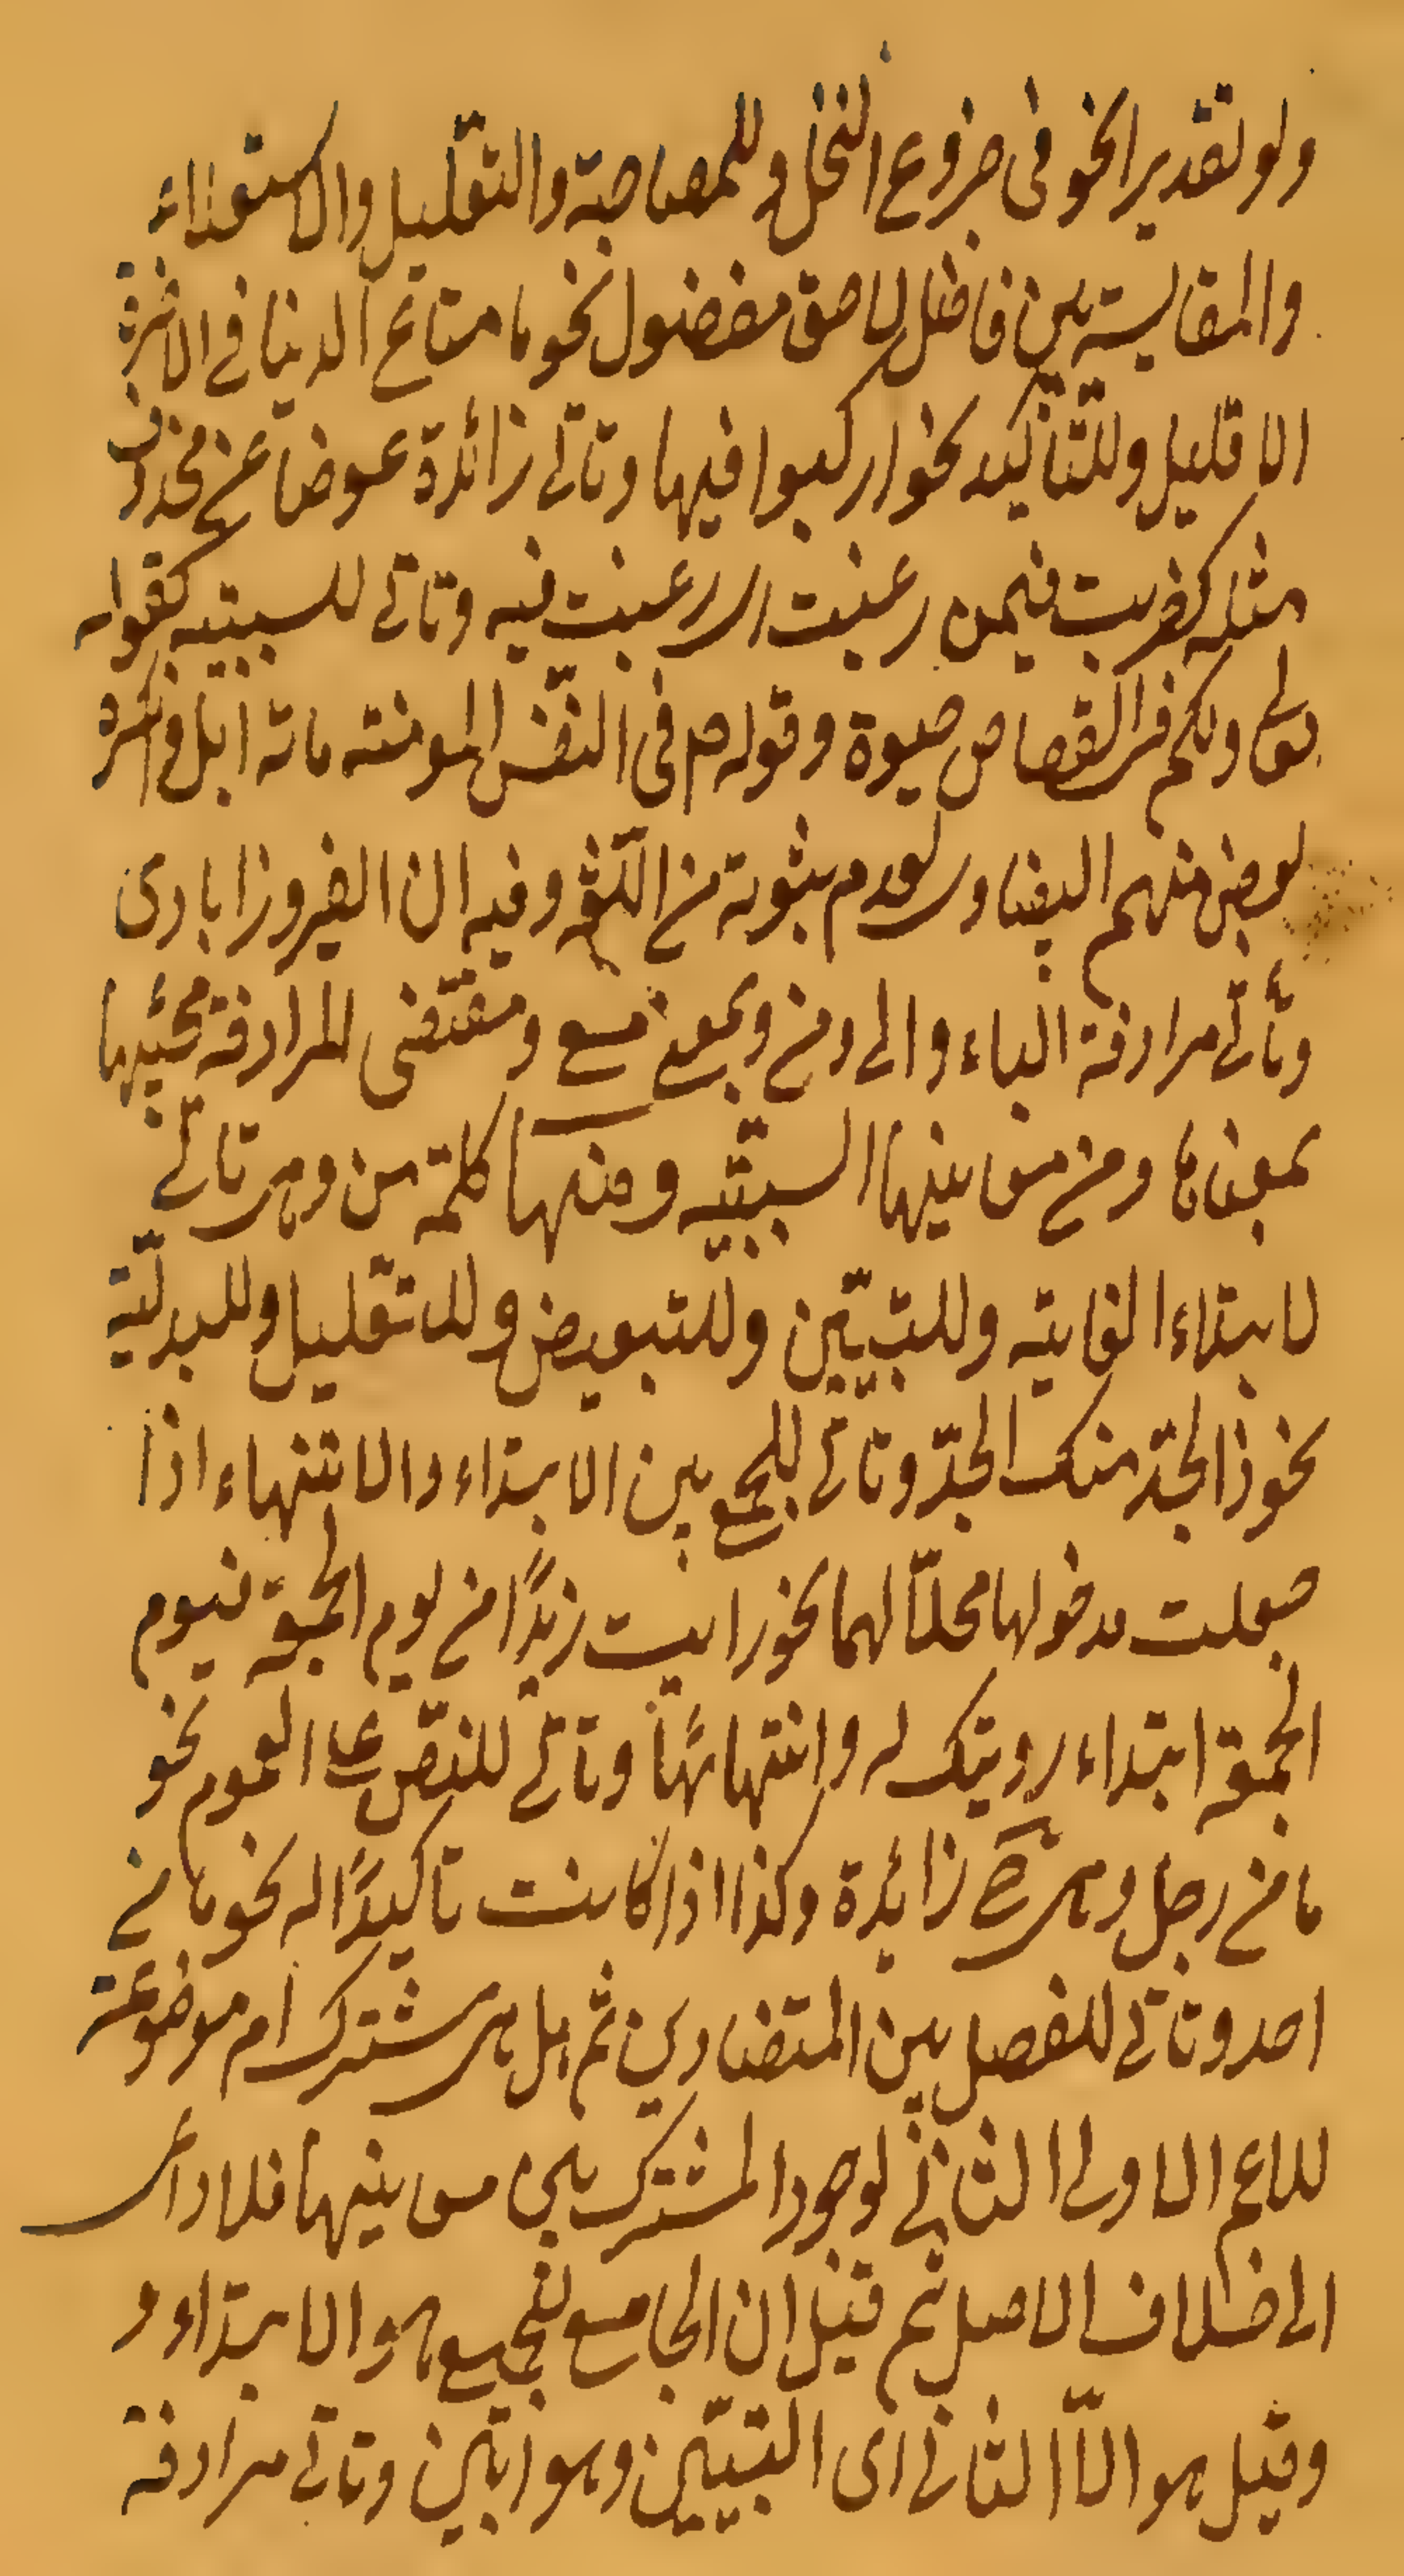 ولو تقديرا نحو فى جزوع النخل وللمصاحبة والتعليل والاستعلاء
والمقايسة بين فاضل لاحق مفضول نحو ما متاع الدنيا فے الاخرة
الا قليل وللتأكيد نحو اركبوا فيها وتاتے زائدة عوضا عن محذوف
مثله كضربت فيمن رغبت اى رغبت فيه وتاتے للسببيه كقوله
تعالى ولكم فى القصاص حيوة وقوله ص فى النفس المومنة مائة ابل وانكره
بعض منهم البيضاوى لعدم ثبوته من اللغة وفيه ان الفيروزابادى
وتأتے مرادفة الباء والى ومن وبمعنى مع ومقتضى المرادفة مجيئها
بمعناها ومن معانيها السببيّه ومنها كلمة من وهى تاتے
لابتداء الغاية وللتبيّين وللتبعيض وللتعليل وللبدليّة
نحو ذا الجدّ منك الجدّ وتاتے للجمع بين الابتداء والانتهاء اذا
جعلت مدخولها محلّا لهما نحو رايت زيدًا من يوم الجمعة فيوم
الجمعة ابتداء رويتك له وانتهائها وتاتے للنصّ على العموم نحو
ما من رجل وهى ح زائدة وكذا اذا كانت تاكيدًا له نحو ما من
احد وتاتے للفصل بين المتضادين ثم هل هى مشترك ام موضوعة
للاعم الاولى الثانے لوجود المشترك بين معانيها فلا داعى
الى خلاف الاصل ثم قيل ان الجامع لجميع هو الابتداء و
وقيل هو الا الثانے اى التبيين وهو ابين وتاتے مرادفة